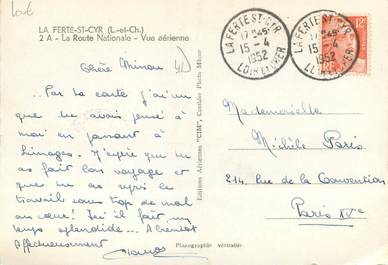 LA FERTE-ST-CYR (L.-et-Ch.)
2 A - La Route Nationale - Vue aérienne
Chère Minou
Par ta carte j'ai vu que
tu avais pensé à
moi en passant à
Limoges. J'espère que tu
as fait bon voyage et
que tu as repris le
travail sans trop de mal
au cœur! Ici il fait un
temps splendide... A bientôt
Affectueusement
Editions Aériennes "CIM", Combier Photo Mâcon
Photographie véritable
LA FERTE-ST-CYR
15-4
1952
LOIR ET CHER
LA FERTE-ST-CYR
15-4
1952
LOIR ET CHER
12F
Mademoiselle
Michèle Paris
214 rue de la Convention
Paris XVe